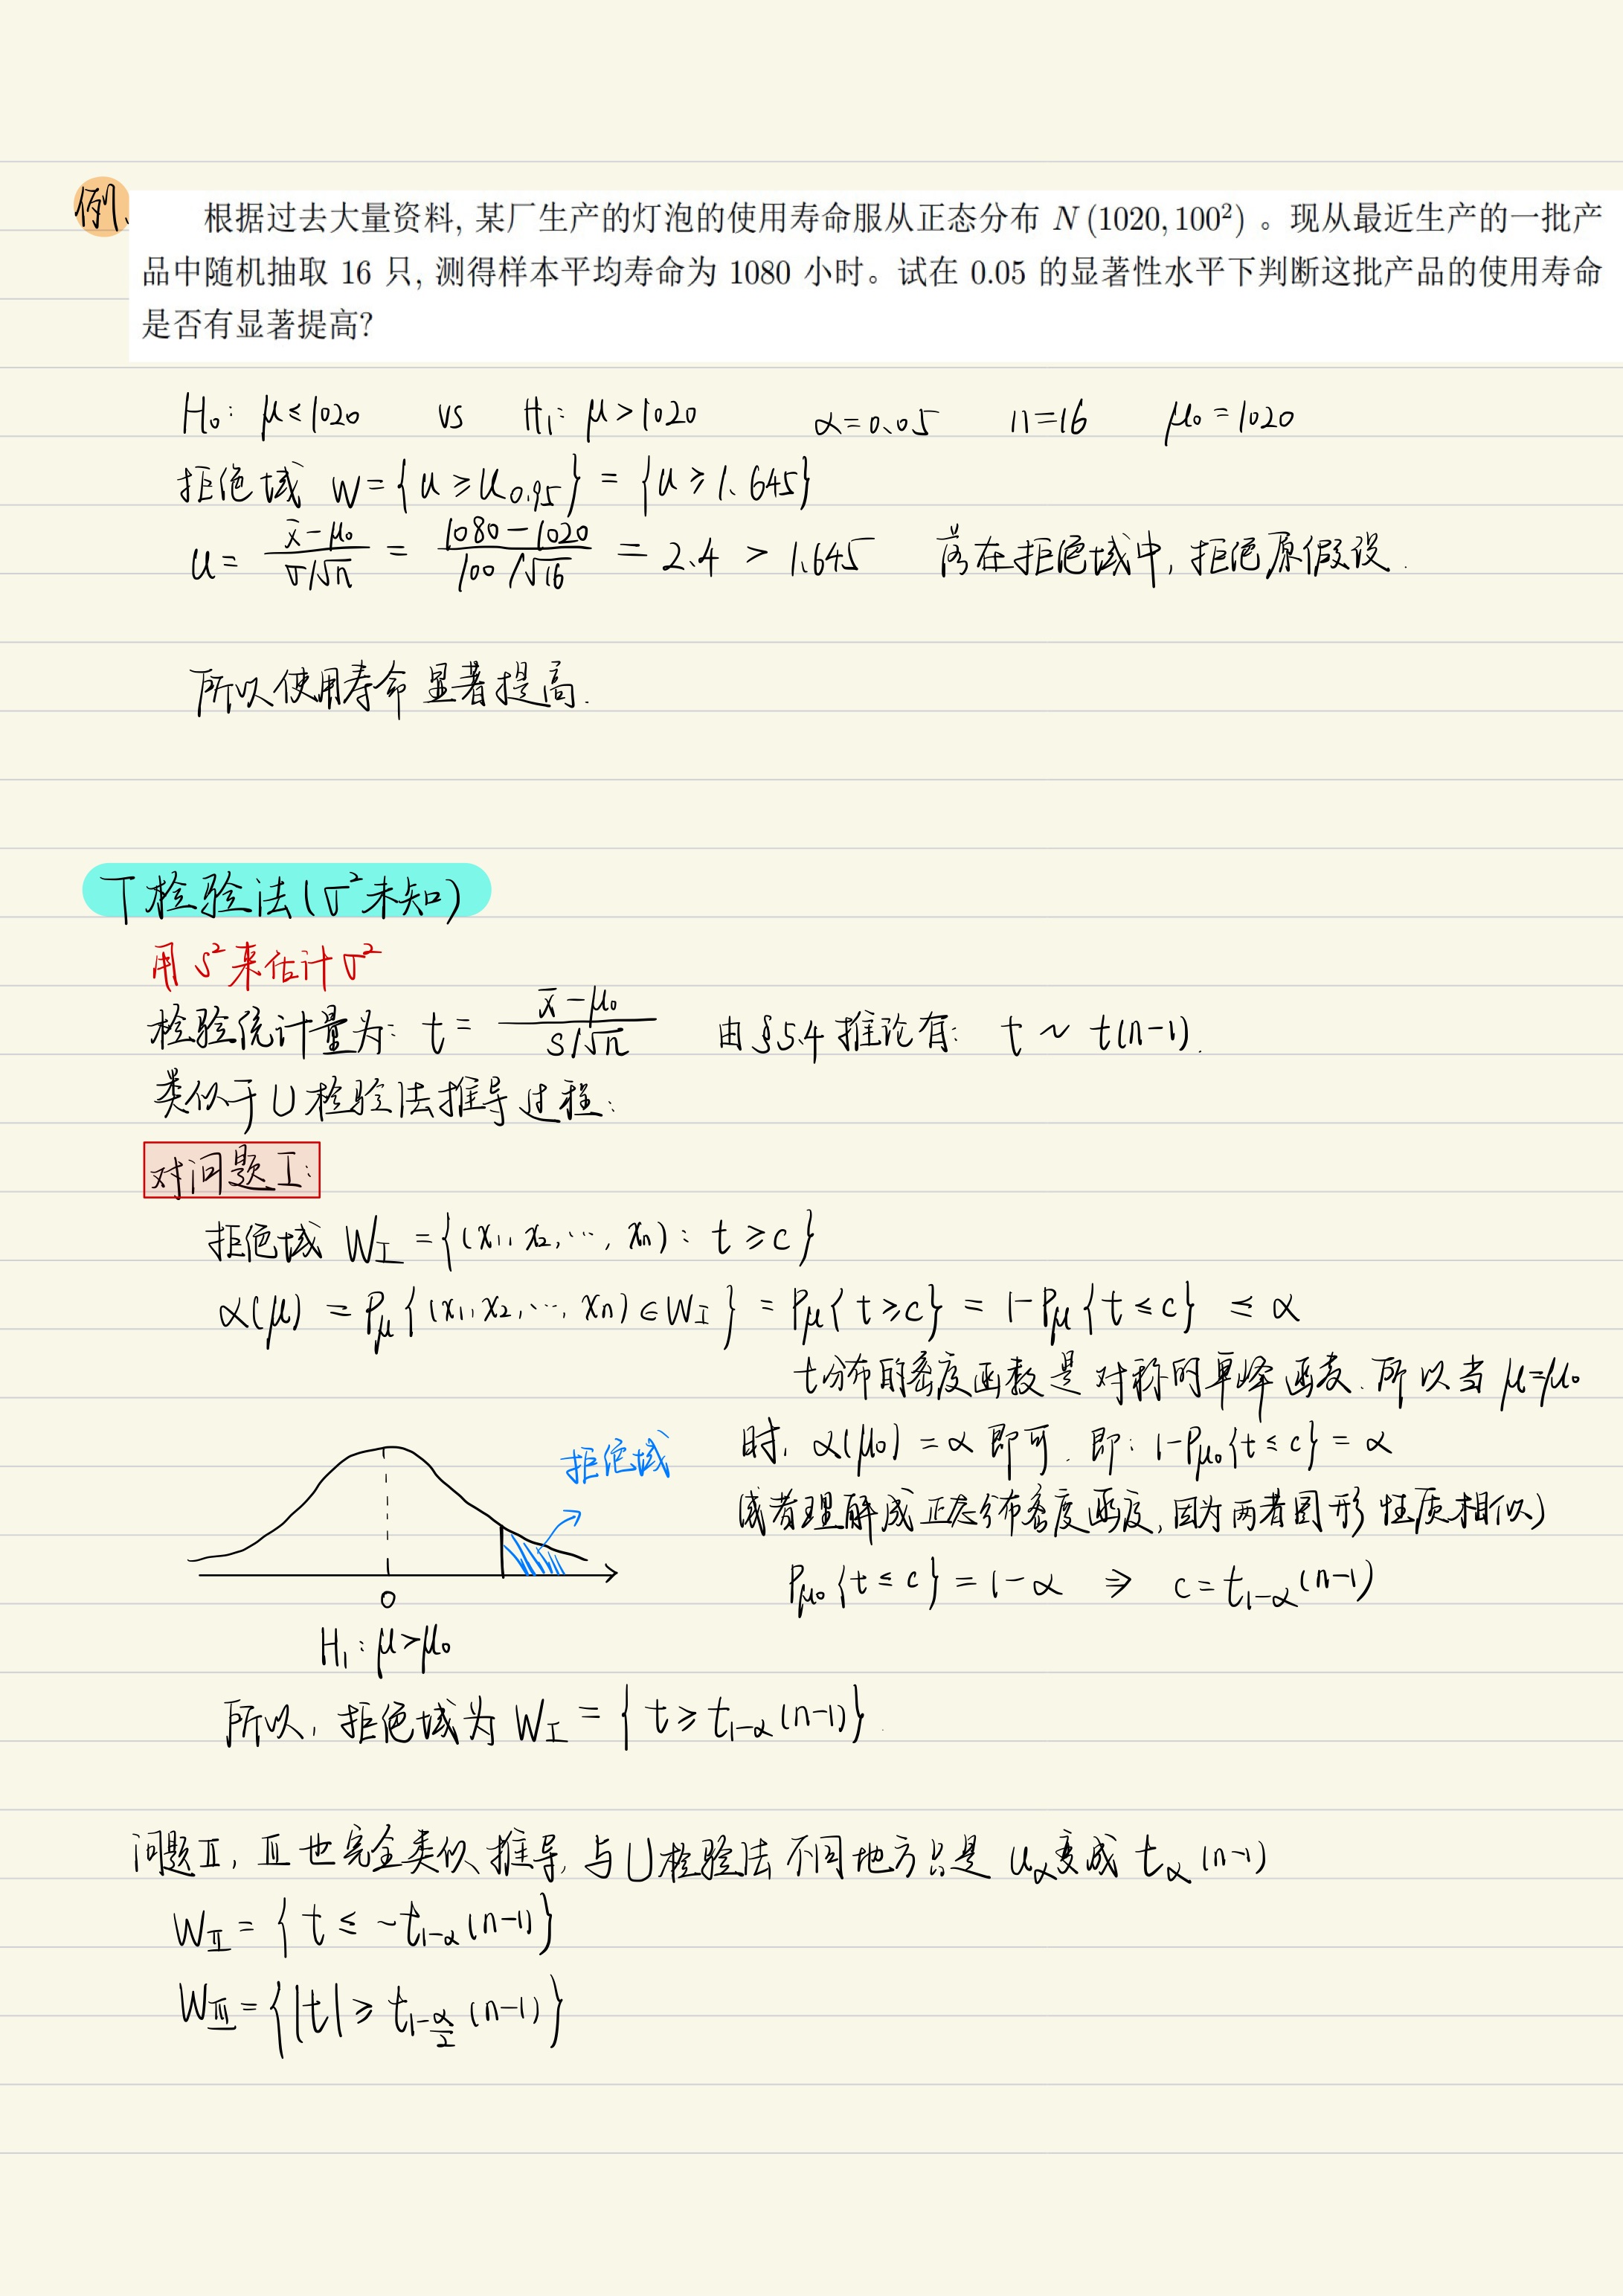 例、
根据过去大量资料, 某厂生产的灯泡的使用寿命服从正态分布 N (1020, 100²) 。现从最近生产的一批产
品中随机抽取 16 只, 测得样本平均寿命为 1080 小时。试在 0.05 的显著性水平下判断这批产品的使用寿命
是否有显著提高?
H₀: μ≤1020 vs H₁: μ>1020 α=0.05 n=16 μ₀=1020
拒绝域 W={u≥u₀.₉₅} = {u≥1.645}
u= (x̄-μ₀)/(σ/√n) = (1080-1020)/(100/√16) = 2.4 > 1.645 落在拒绝域中, 拒绝原假设.
所以使用寿命显著提高.
T检验法(σ²未知)
用 s²来估计σ²
检验统计量为: t = (x̄-μ₀)/(s/√n) 由§5.4推论有: t ~ t(n-1).
类似于U检验法推导过程:
对问题I:
拒绝域 W_I ={(x₁, x₂, ⋯, xₙ): t≥c}
α(μ) = P_μ{(x₁, x₂, ⋯, xₙ)∈W_I} = P_μ{t≥c} = 1-P_μ{t≤c} ≤ α
t分布的密度函数是对称的单峰函数. 所以当 μ=μ₀
时, α(μ₀)=α 即可. 即: 1-P_μ₀{t≤c} = α
(或者理解成正态分布密度函数, 因为两者图形性质相似)
P_μ₀{t≤c}=1-α ⇒ c=t_{1-α}(n-1)
拒绝域
0
H₁: μ>μ₀
所以, 拒绝域为 W_I = {t≥t_{1-α}(n-1)}.
问题Ⅱ, Ⅲ也完全类似推导, 与U检验法不同地方只是 u_α变成 t_α(n-1)
W_Ⅱ = {t≤-t_{1-α}(n-1)}
W_Ⅲ={|t|≥t_{1-α/2}(n-1)}